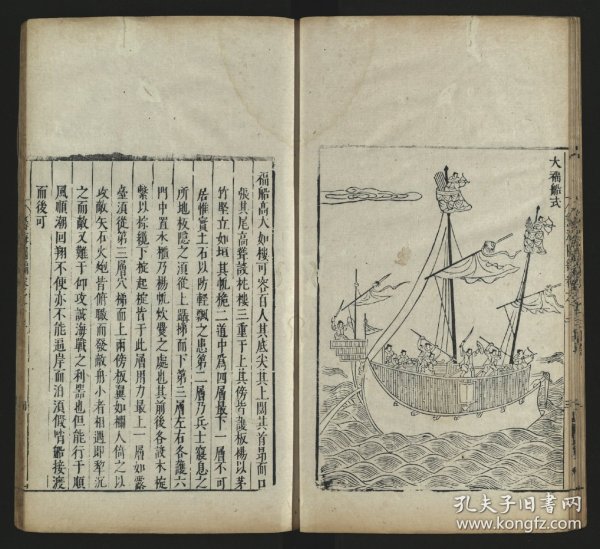 大福船式
福船高大如樓可容百人其底尖其上闊其首昂而口
張其尾高聳設柁樓三重于上其傍皆護板楊以茅
竹堅立如垣其帆桅二道中為四層最下一層不可
居惟實土石以防輕飄之患第二層乃兵士寢息之
所地板隱之須從上躡梯而下第三層左右各護六
門中置水櫃乃楊帆炊爨之處也其前後各設木椗
繫以棕纜下椗起椗皆于此層用力最上一層如露
臺須從第三層穴梯而上兩傍板翼如欄人倚之以
攻敵矢石火炮皆俯瞰而發敵舟小者相遇即犁沉
之而敵又難于仰攻誠海戰之利器也但能行于順
風順潮回翔不便亦不能逼岸而泊須假哨船接渡
而後可
孔夫子旧书网
www.kongfz.com